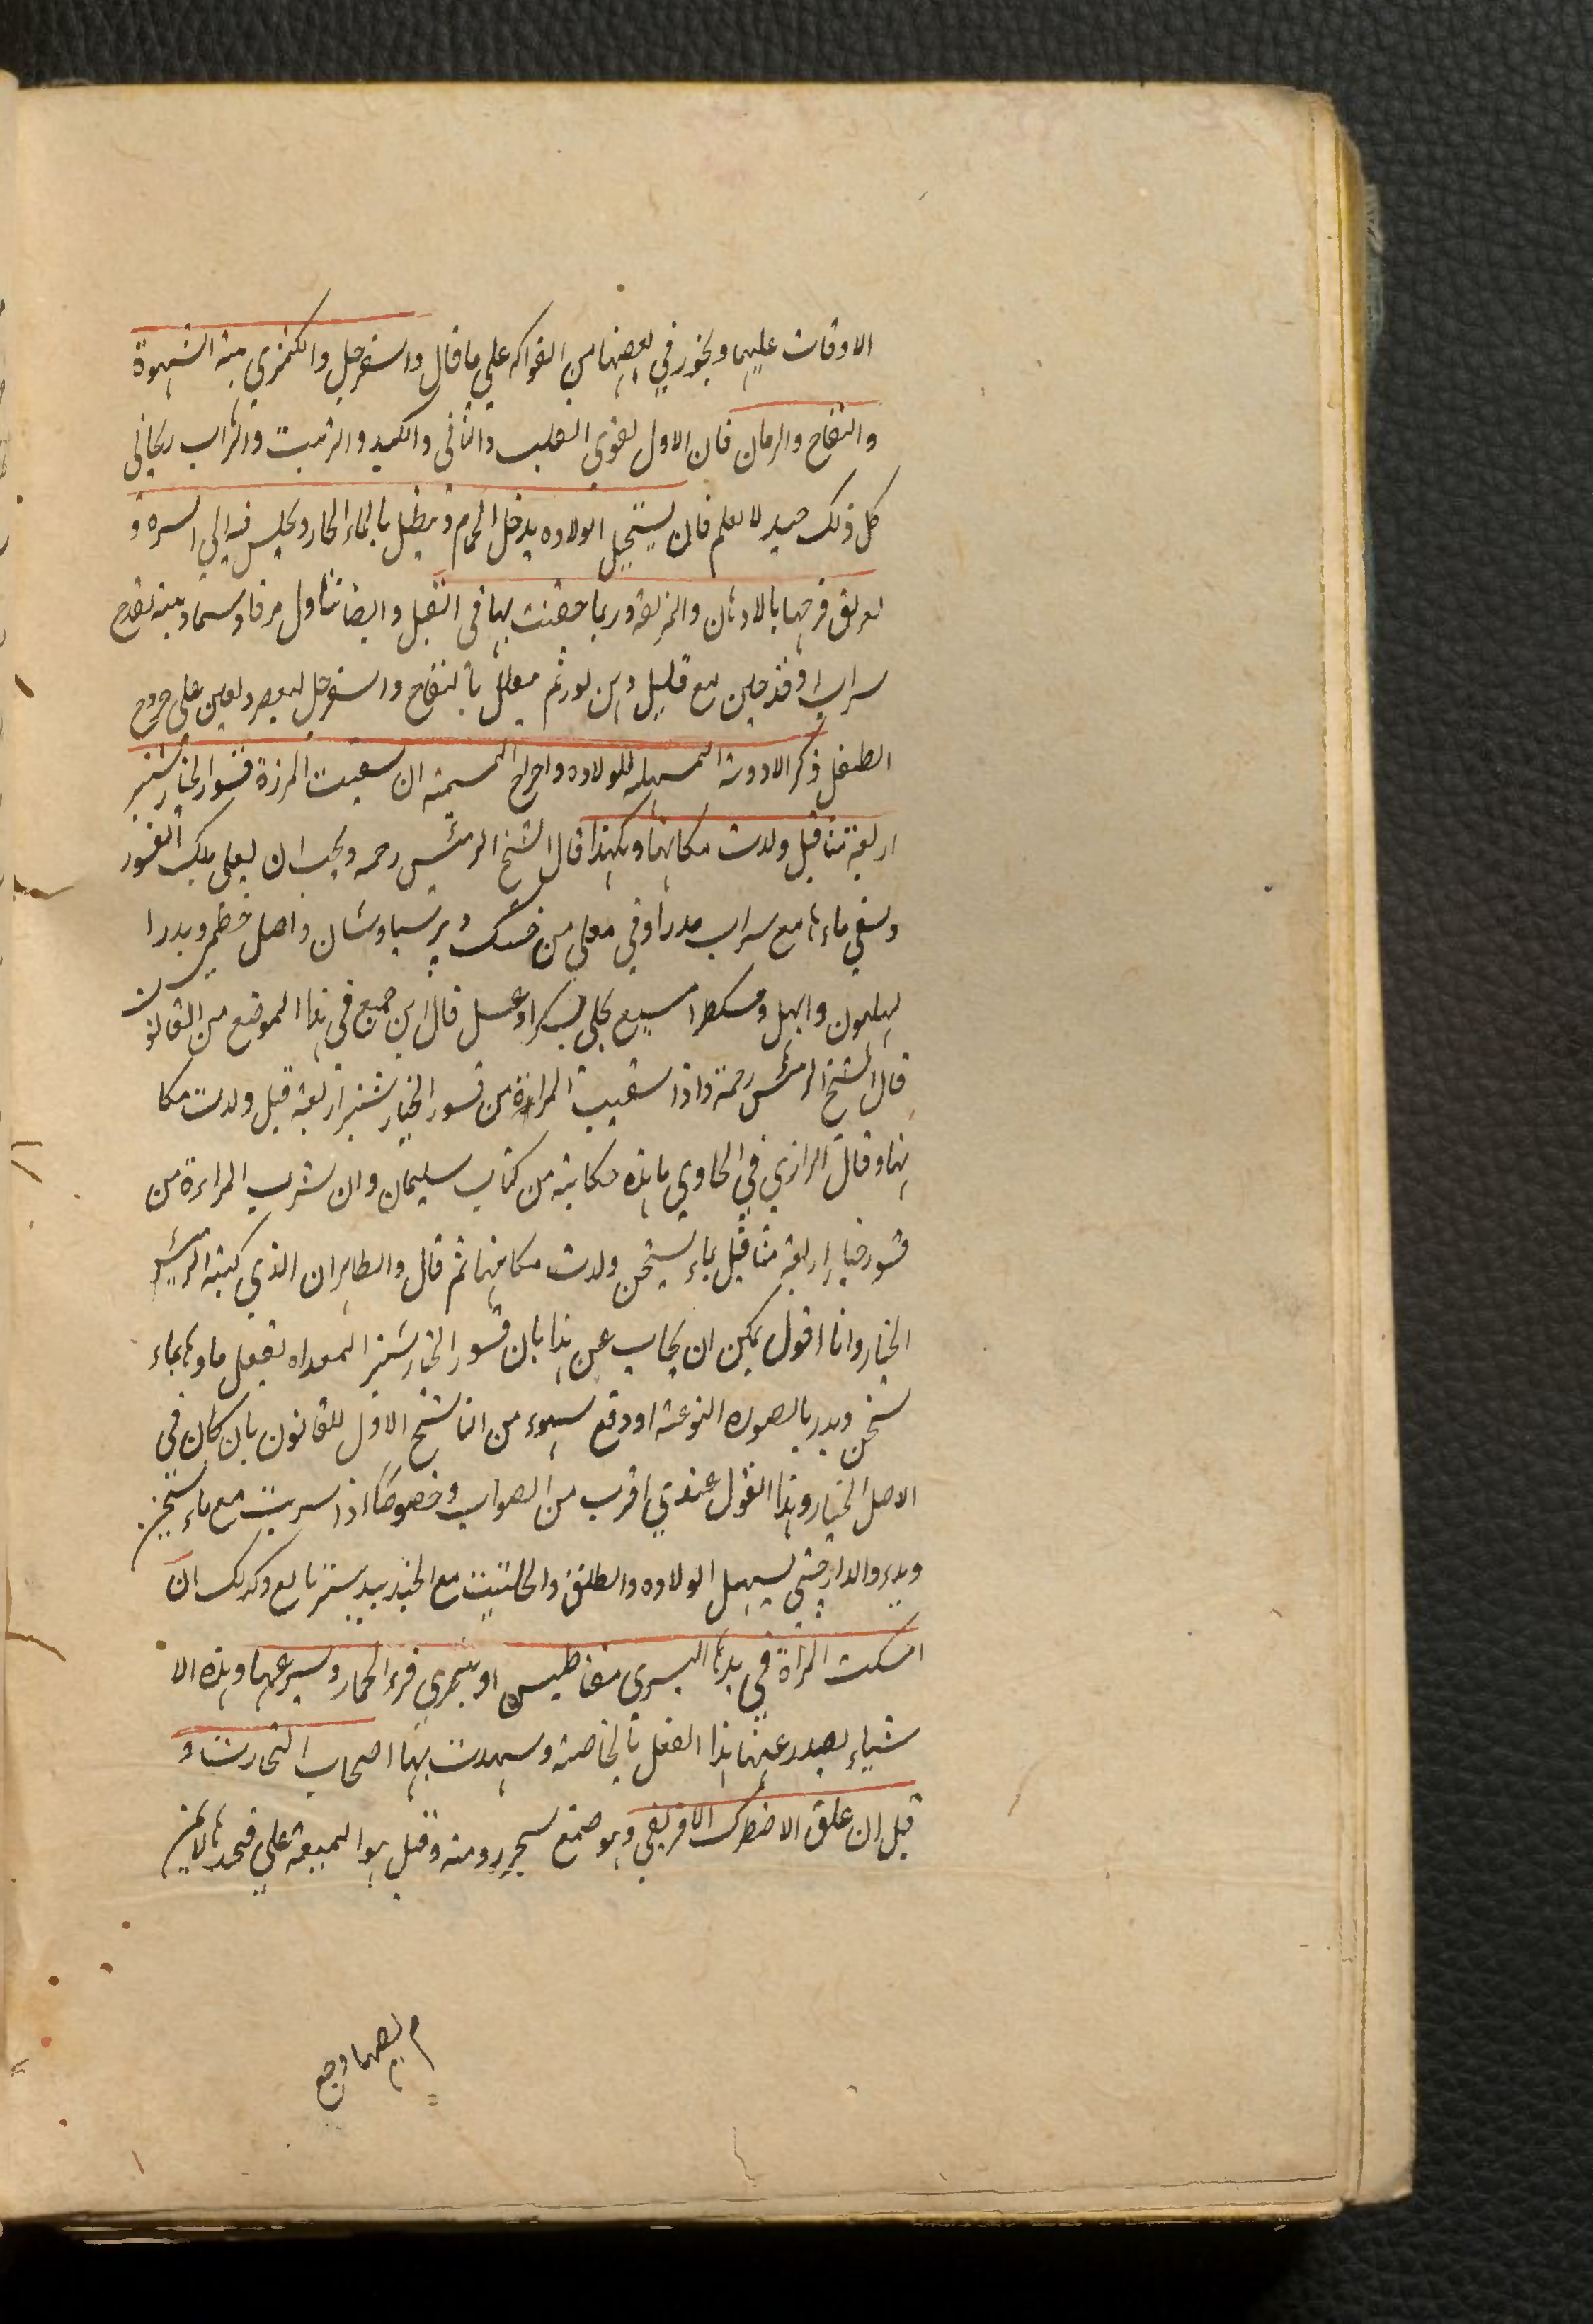 الاوقات عليهما ويجوز في بعضها من الفواكه على ما قال والسفرجل والكمثرى منبه الشهوة
والتفاح والرمان فان الاول يقوي القلب والثاني والكبد والزبيب والشراب ريحاني
كل ذلك جيد لا يعلم فان يستحيل الولاده يدخل الحمام وينطل بالماء الحار ويجلس فيه الى السره و
يمرق فرجها بالادهان والمزلقة وربما حقنت بها في القبل وايضا تناول مرقا وسما ومنه بقدح
سراب او قدحين مع قليل دهن لوز ثم معلل بالتفاح والسفرجل ليعصر ويعين على خروج
الطفل ذكر الادوية المسهلة للولاده واخراج المشيمة ان سقيت المرءة قشور الخيارشنبر
اربعة مثاقيل ولدت مكانها وبهذا قال الشيخ الرئيس رحمه ويجب ان يغلى تلك القشور
وسقى ماءها مع سراب مدرا وفي مغلي من خسك وپرسياوشان واصل خطمي وبدرا
لهليون وابهل ومشكطرامسيع يحلى بسكر او عسل قال ابن جميع في هذا الموضع من القانون
قال الشيخ الرئيس رحمه واذا سقيت المراءة من قسور الخيار شنبر اربعة قيل ولدت مكا
نها وقال الرازي في الحاوي ما هذه حكايته من كتاب سليمان وان شرب المراءة من
قشور خيار اربعة مثاقيل بماء سخن ولدت مكانها ثم قال والظاهر ان الذي كتبه الرئيس
الخيار وانا اقول يمكن ان يجاب عن هذا بان قسور الخيار شنبر المعداه يفعل ماوها بماء
سخن وبدر بالصورة النوعية او وقع سهوء من الناسخ الاول للقانون بان كان في
الاصل الخيار وهذا القول عندي اقرب من الصواب وخصوصا اذا سربت مع ماء سخن
وبدء والدارچيني يسهل الولاده والطلق والحلتيت مع الجندبيدستر نافع وكذلك ان
امسكت المراة في يدها اليسرى مغناطيس او بخرى فرء الحمار وسرعها وهذه الا
شياء يصدر عنها هذا الفعل بالخاصة وسهدت بها اصحاب التجارت و
قيل ان علق الاصطرك الافريقي وهو صمغ سجر رومية وقيل هو الميعة على فخذها الايمن